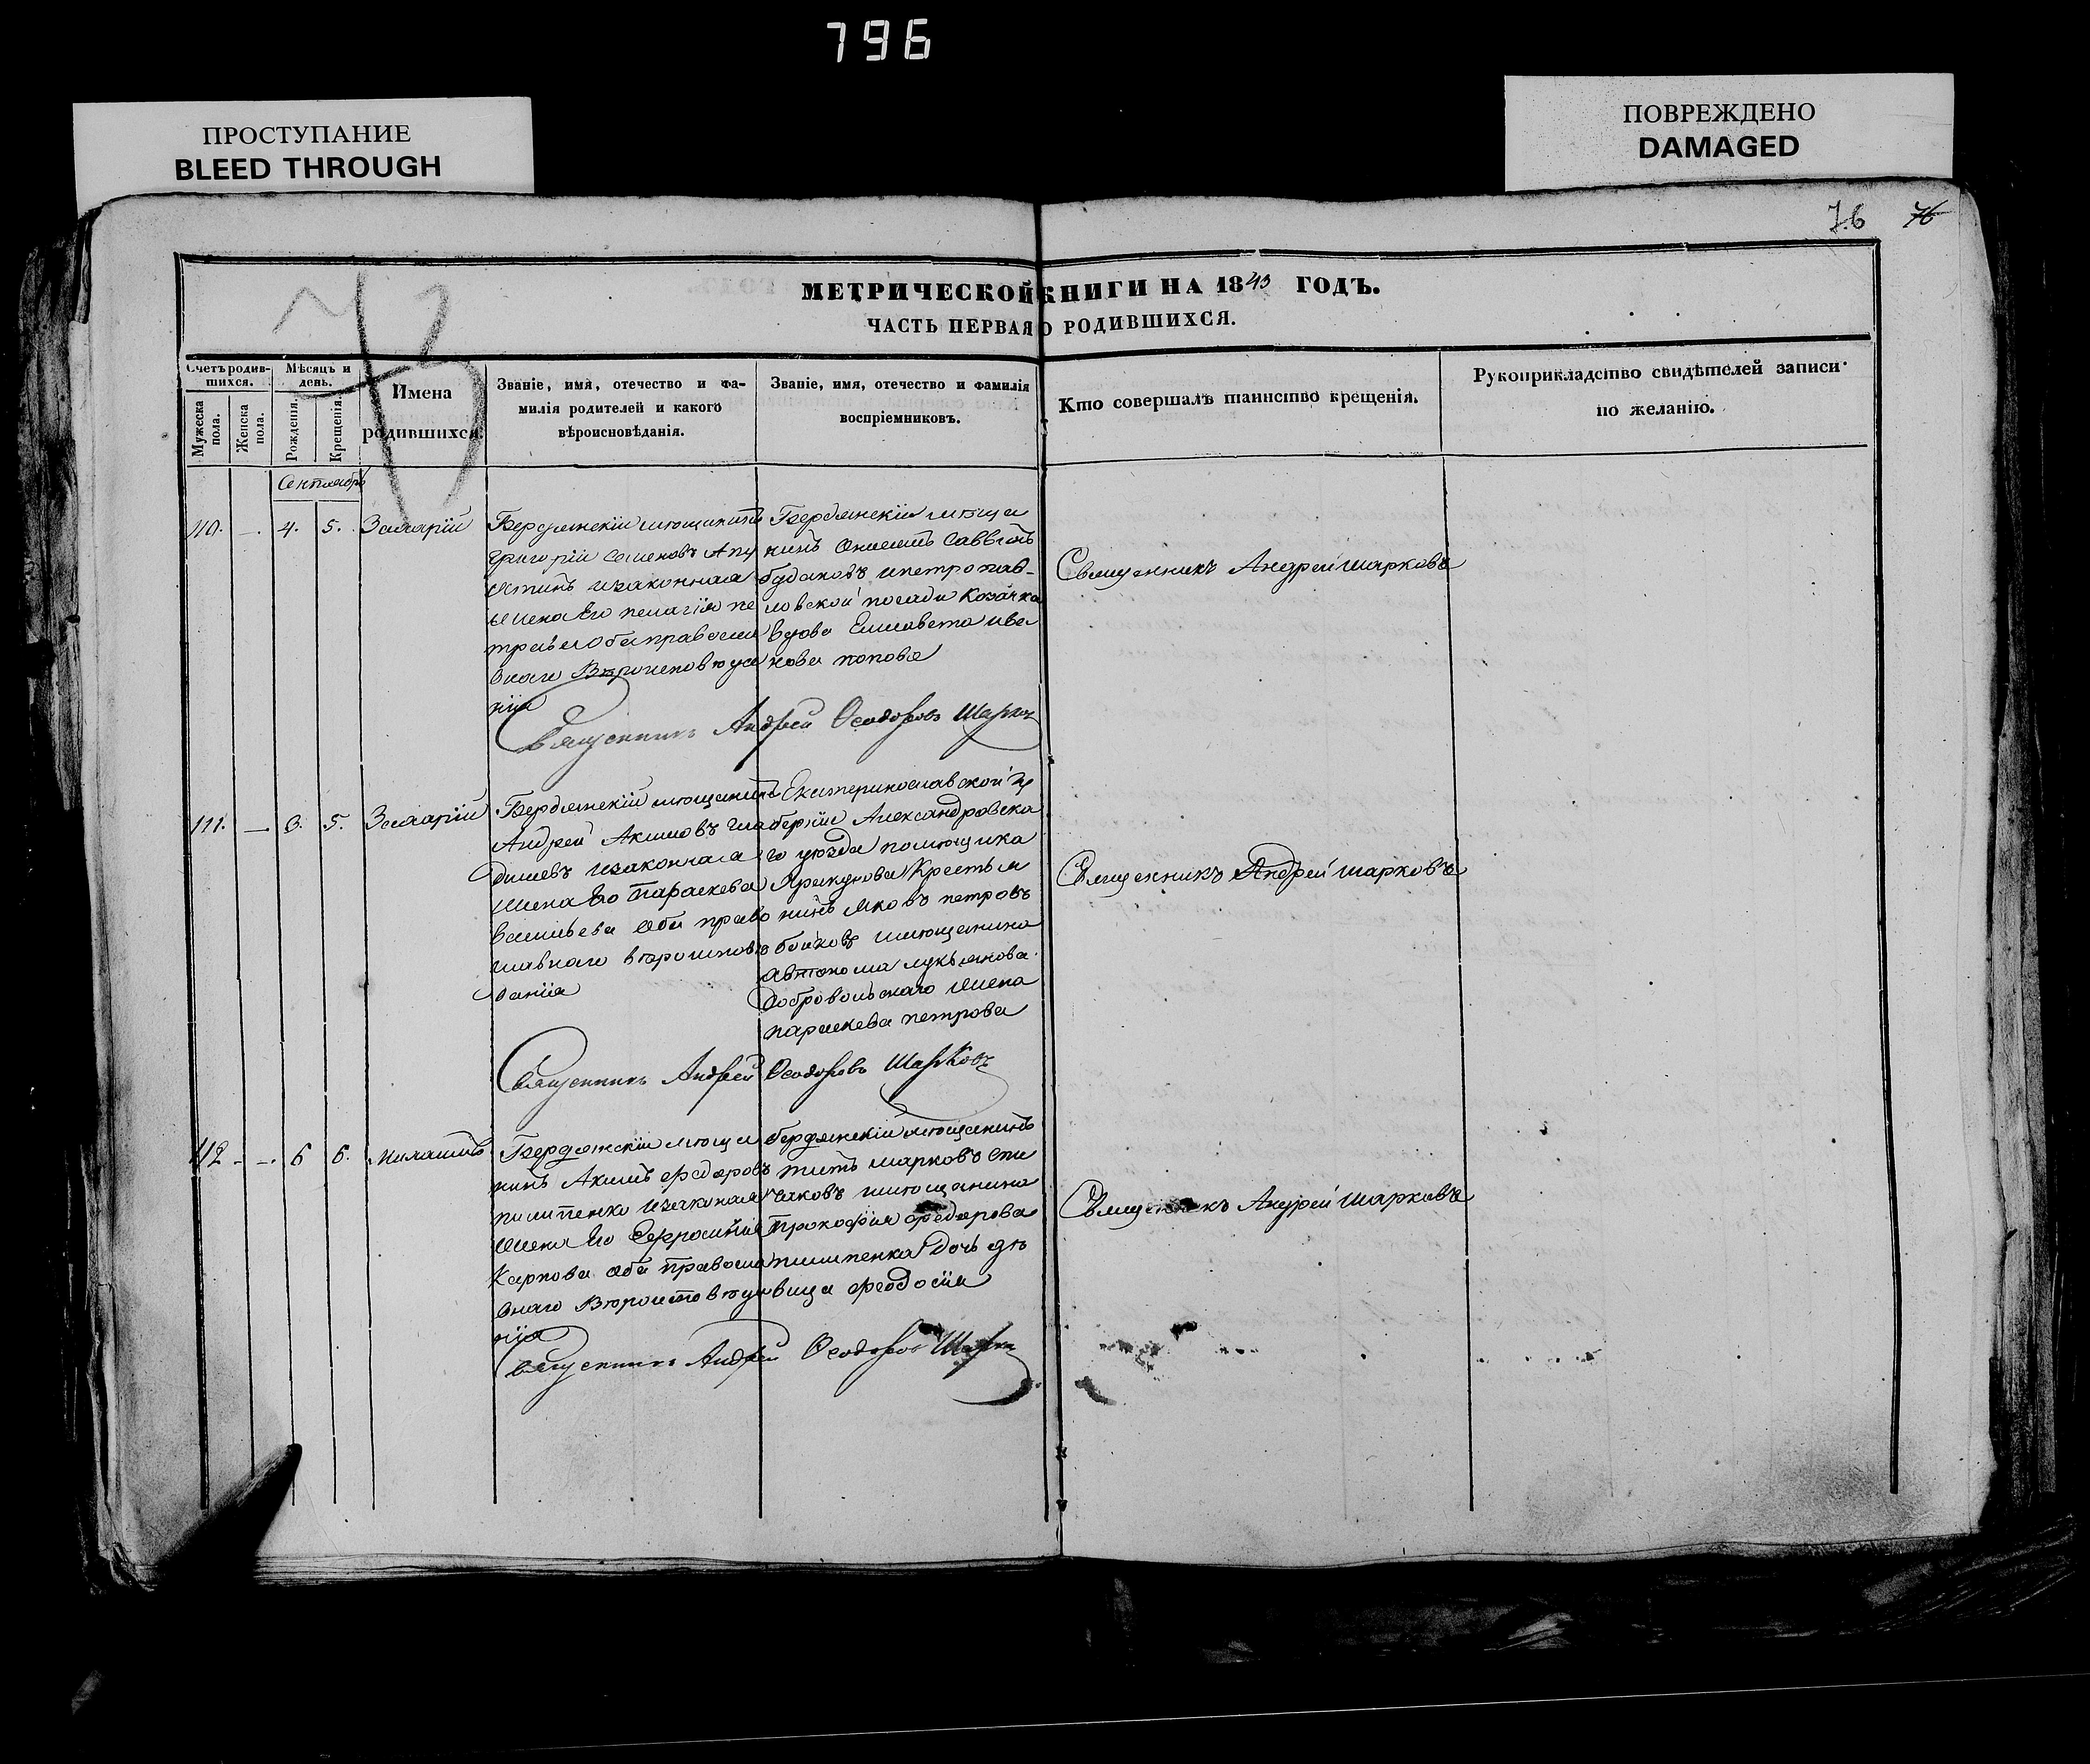 796
ПРОСТУПАНИЕ
BLEED THROUGH
ПОВРЕЖДЕНО
DAMAGED
76 76
МЕТРИЧЕСКОЙ КНИГИ НА 1843 ГОДЪ.
ЧАСТЬ ПЕРВАЯ О РОДИВШИХСЯ.
Счетъ родив-
шихся.
Мужеска
пола.
Женска
пола.
Мѣсяцъ и
день.
Рожденія.
Крещенія.
Имена
родившихся.
Званіе, имя, отечество и фа-
милія родителей и какого
вѣроисповѣданія.
Званіе, имя, отечество и фамилія
воспріемниковъ.
Кто совершалъ таинство крещенія.
Рукоприкладство свидѣтелей записи
по желанію.
Сентябрь
110. —. 4. 5. Захарій
Бердянскій мѣщанинъ
Григорій Семеновъ
и законная
жена Его пелагія пе
трова оба православ
наго Вѣроисповѣда
нія
Бердянскій мѣща
нинъ Онисимъ Саввинъ
будаковъ и петропав-
ловской посади Козачка
вдова Елисавета ива
нова попова
Священникъ Андрей шарковъ
Священникъ Андрей Ѳеодоровъ Шарковъ
111. — 3. 5. Захарій
Бердянскій мѣщанинъ
Андрей Акимовъ гла
дишевъ и законная
жена Его Параскева
васильева оба право
славнаго вѣроисповѣ
данія
Екатеринославской гу
берніи Александровска
го уѣзда помѣщика
Крестья
нинъ Яковъ петровъ
бойковъ и мѣщанина
автонома лукьянова
добровольскаго жена
параскева петрова
Священникъ Андрей шарковъ
Священникъ Андрей Ѳеодоровъ Шарковъ
112 - —. 6 6.
Бердянскій мѣща
нинъ Акимъ федоровъ
пилипенко и законая
жена Его Ефросинія
Карпова оба правосла
внаго Вѣроисповѣда
нія
бердянскій мѣщанинъ
титъ марковъ
и мѣщанина
Прокофія федорова
пилипенка дочь дѣ
вица феодосія
Священникъ Андрей шарковъ
Священникъ Андрей Ѳеодоровъ Шарковъ